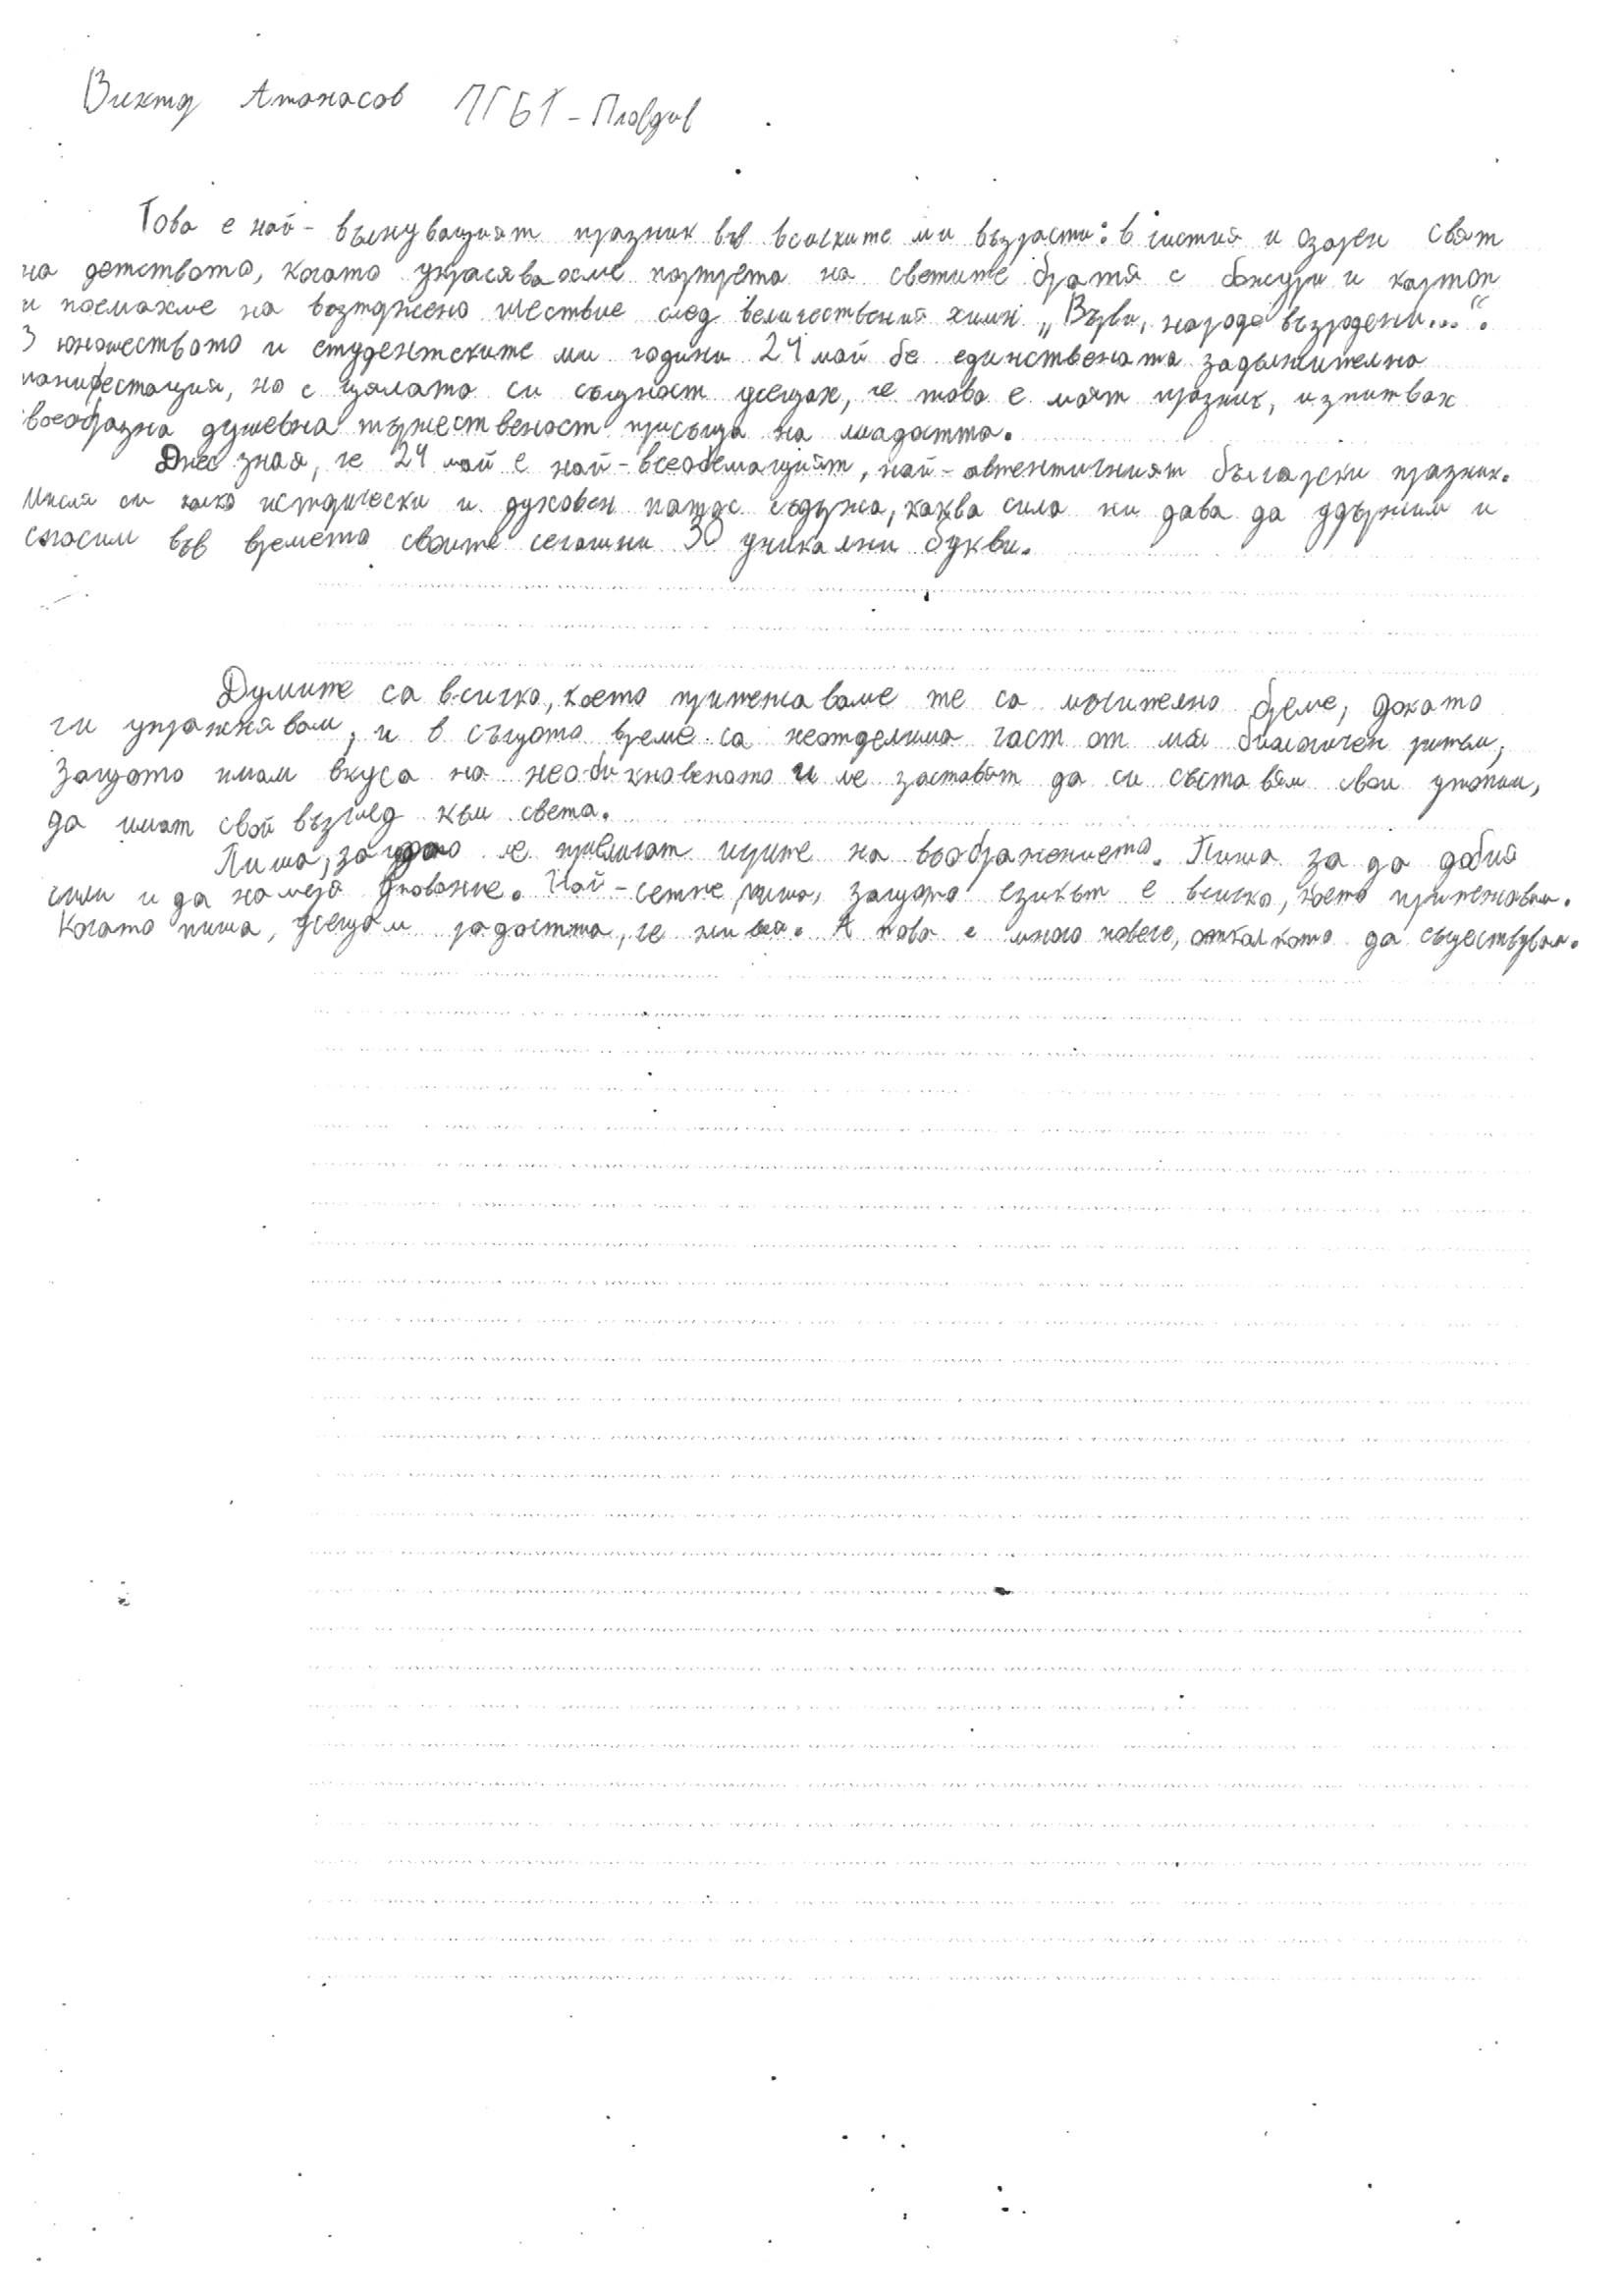 Виктор Атанасов ПГБТ - Пловдив
Това е най - вълнуващият празник във всичките ми възрасти: в чистия и озарен свят
на детството, когато украсявахме портрета на светите братя с божури и картон
и поемахме на възторжено шествие след величествения химн „Върви, народе възродени...“.
В юношеството и студентските ми години 24 май бе единствената задължителна
манифестация, но с цялата си същност усещах, че това е моят празник, изпитвах
своеобразна душевна тържественост присъща на младостта.
Днес зная, че 24 май е най - всеобемащият, най - автентичният български празник.
Мисля си колко исторически и духовен патос съдържа, каква сила ни дава да удържим и
съгласим във времето своите сегашни 30 уникални букви.
Думите са всичко, което притежаваме те са мъчително бреме, докато
ги упражнявам, и в същото време са неотделима част от моя биологичен ритъм,
защото имам вкуса на необикновеното и ме заставят да си съставям свои утопии,
да имат свой възглед към света.
Пиша, защото ме привличат игрите на въображението. Пиша за да добия
сили и да намеря упование. Най - сетне пиша, защото езикът е всичко, което притежавам.
Когато пиша, усещам радостта, че живея. А това е много повече, отколкото да съществувам.